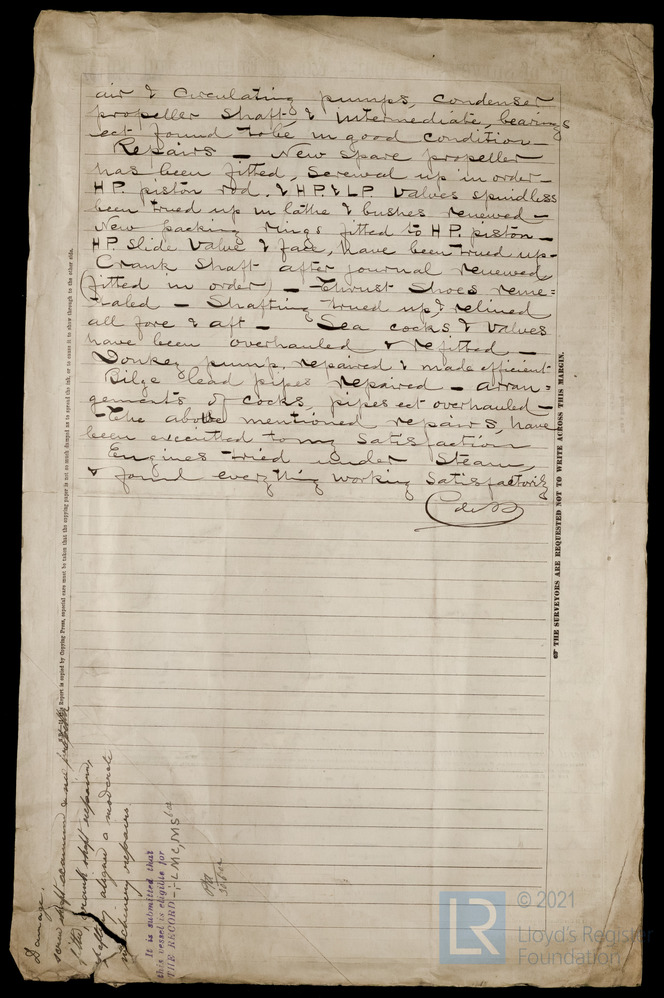 air & Circulating pumps, Condenser
propeller Shaft & intermediate, bearings
ect found to be in good condition —
Repairs — New Spare propeller
has been fitted, Screwed up in order —
HP. piston rod. & HP. & LP Valves spindless
been trued up in lathe & bushes renewed —
New packing rings fitted to HP. piston —
HP Slide Valve & face, have been trued up -
Crank Shaft after journal renewed
(fitted in order) — thrust Shoes reme=
taled — Shafting trued up & relined
all fore & aft — Sea cocks & Valves
have been overhauled & refitted —
Donkey pump, repaired & made efficient
Bilge lead pipes repaired — arran=
gements of cocks, pipes ect overhauled —
The above mentioned repairs, have
been executed to my satisfaction
Engines tried under Steam,
& found everything working Satisfactorily
THE SURVEYORS ARE REQUESTED NOT TO WRITE ACROSS THIS MARGIN.
Report is copied by Copying Press, especial care must be taken that the copying paper is not so much damped as to spread the ink, or to cause it to show through to the other side.
Damage.
screw shaft examined & new propeller
fitted, crank shaft repaired,
shafting aligned & moderate
machinery repairs
It is submitted that
this vessel is eligible for
THE RECORD + LMC, MS
© 2021
LR
Lloyd's Register
Foundation